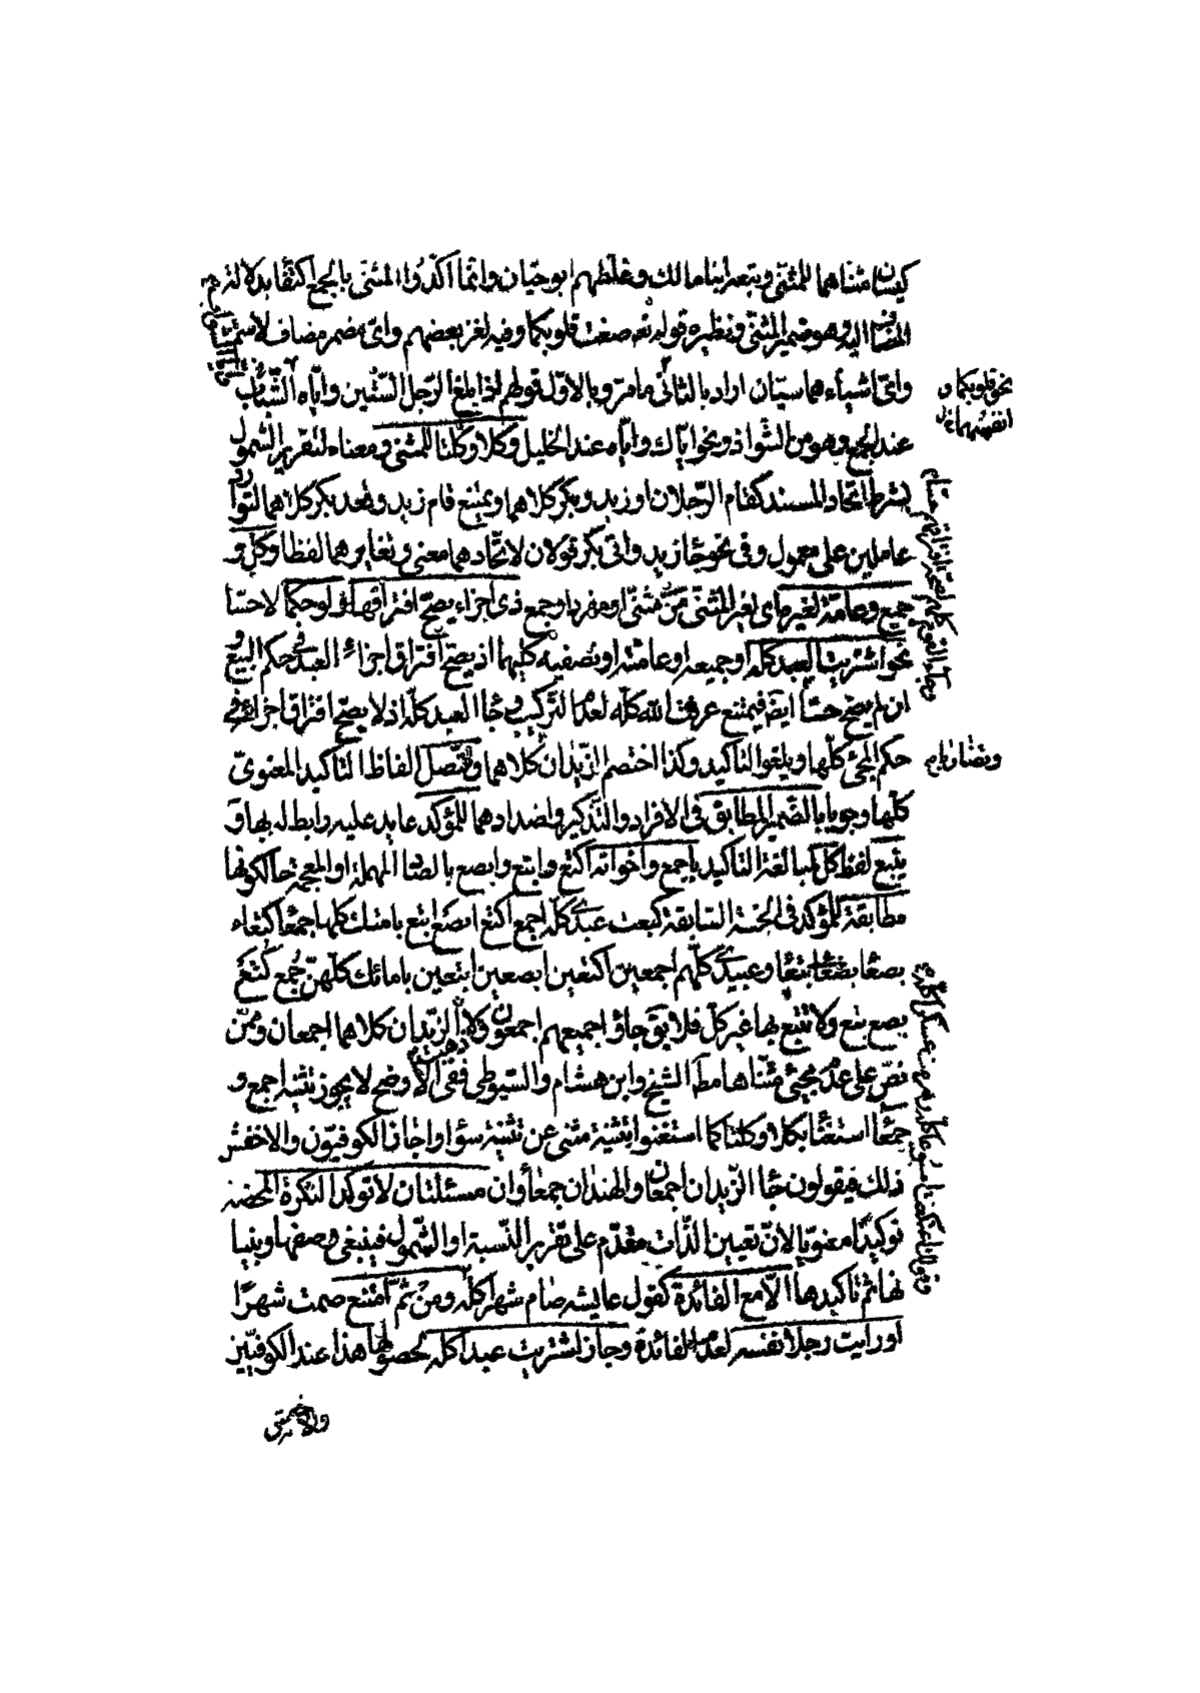 كيسان مثناهما للمثنى وتبعه ابنا مالك وغلطهم ابو حيان وانما اكدوا المثنى بالجمع اكتفا بدلالة
المضاف اليه وهو ضمير المثنى ونظيره قوله تعه صغت قلوبكما وفيه لغز بعضهم واى مضمر مضاف
واى اشياء هما سيّان اراد بالثانى ما مر وبالاول قولهم اذا بلغ الرجل الستين واياه الشواب
عند الجمع وهو من الشواذ ونحو اياك واياه عند الخليل وكلا وكلتا للمثنى ومعناه لتقرير الشمول
بشرط اتحاد المسند كقام الرجلان او زيد وبكر كلاهما ويمتنع قام زيد وقعد بكر كلاهما لتوارد
عاملين على معمول وفى نحو جا زيد واتى بكر قولان لاتحادهما معنى وتغايرهما لفظا وكل و
جميع وعامة لغيره اى لغير المثنى من مثنى او مفرد او جمع ذى اجزاء يصح افتراقها ولو حكما لا حسا
نحو اشتريت العبد كله او جميعه او عامته او نصفيه كليهما اذ يصح افتراق اجزاء العبد فى حكم البيع و
ان لم يصح حسا ايضا فيمتنع عرفت الله كله لعدم التركيب وجا العبد كله اذ لا يصح افتراق اجزائه فى
حكم المجئ كلها ويلغو التاكيد وكذا اختصم الزيدان كلاهما وتتصل الفاظ التاكيد المعنوى
كلها وجوبا بالضمير المطابق فى الافراد والتذكير واضدادهما للمؤكد عايد عليه رابط له بها و
يتبع لفظ كل لمبالغة التاكيد باجمع واخواته اكتع وابتع وابصع بالصاد المهملة او المعجمة حالكونها
مطابقة للمؤكد فى الخمسة السابقة كبعت عبدى كله اجمع اكتع ابصع ابتع بامتك كلها جمعا كتعاء
بصعا بضعا بتعا وعبيدى كلهم اجمعين اكتعين ابصعين ابتعين بامائك كلهن جمع كتع
بصع بتع ولا تتبع بها غير كل فلا يق جاؤ اجميعهم اجمعون ولا الزيدان كلاهما اجمعان وممن
نص على عدم مجئ مثناها مط الشيخ وابن هشام والسيوطى ففى الاوضح لا يجوز تثنيه اجمع و
جمعا استغنا بكلا وكلتا كما استغنوا بتثنية مثنى عن تثنية سؤا واجاز الكوفيون والاخفش
ذلك فيقولون جا الزيدان اجمعان والهندان جمعاوان مسئلتان لا توكد النكرة المحضه
توكيدا معنويا لان تعيين الذات مقدم على تقرير النسبة او الشمول فينبغى وصفها وبنيا
نها ثم تاكيدها الا مع الفائدة كقول عايشه صام شهرا كله ومن ثم امتنع صمت شهرا
او رايت رجلا نفسه لعدم الفائدة وجاز اشتريت عبدا كله لحصولها هذا عند الكوفيين
نحو قلوبكما و
انفسهما